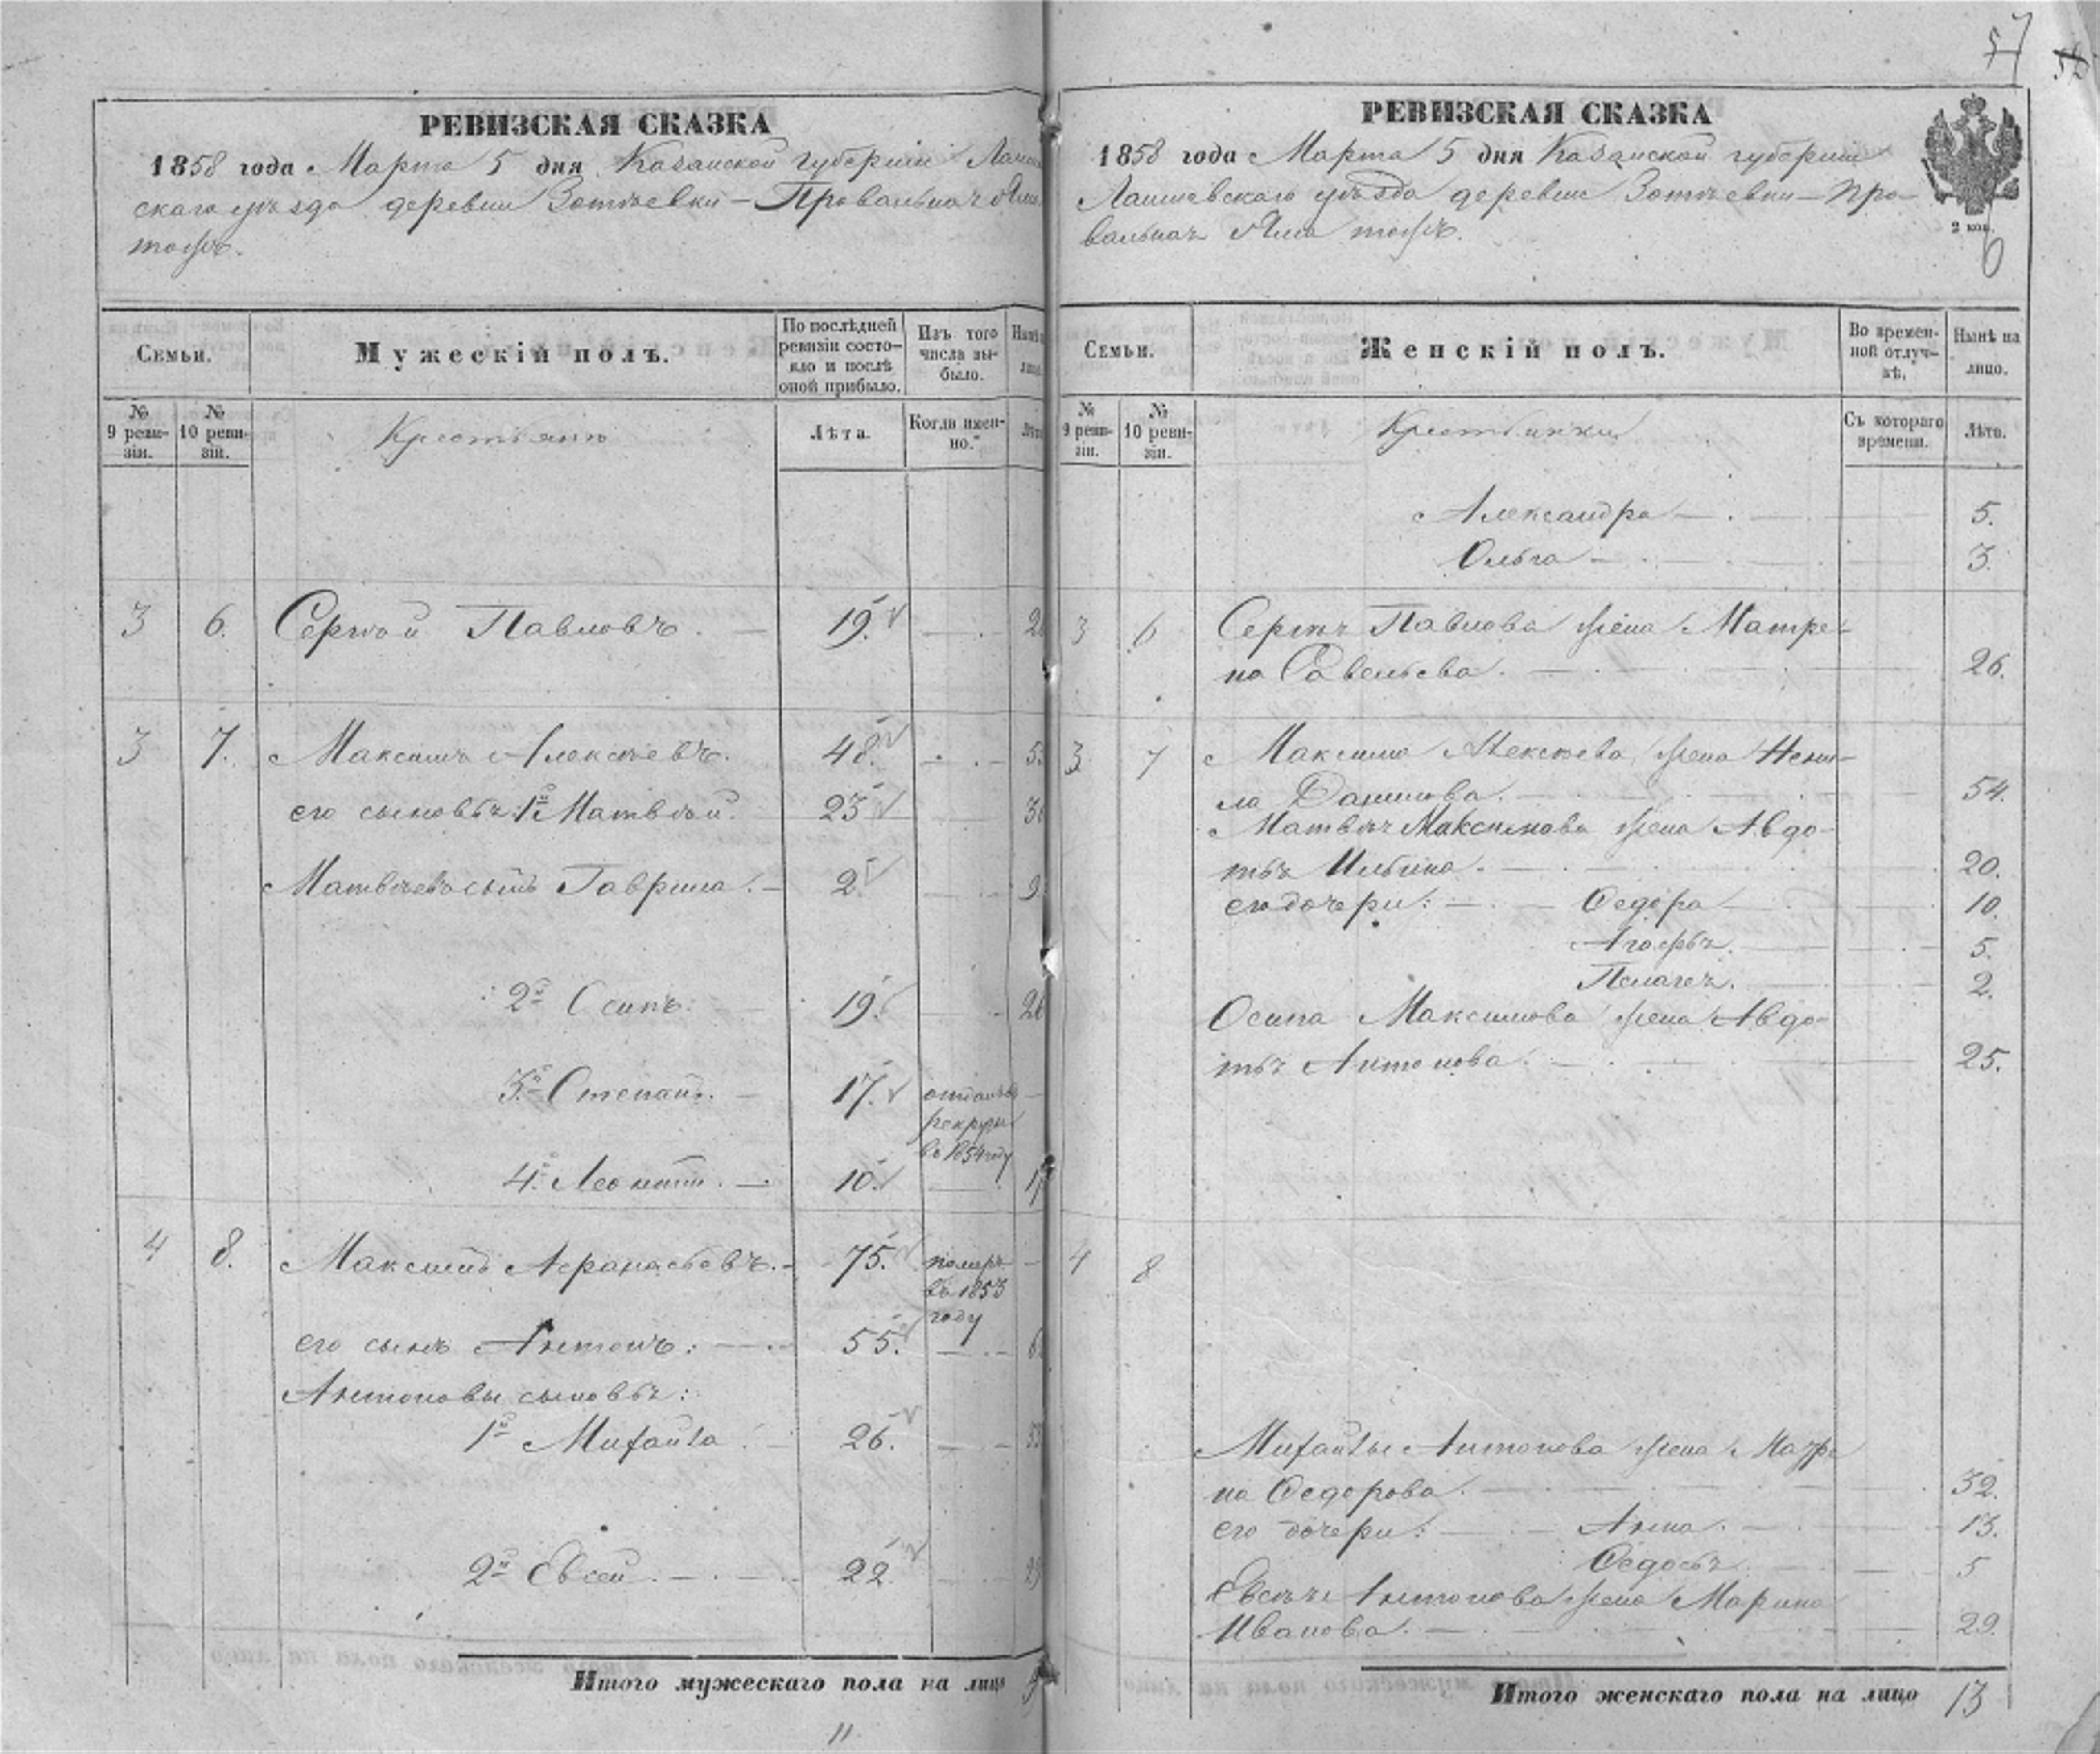 57
РЕВИЗСКАЯ СКАЗКА
1858 года Марта 5 дня Казанской губерніи Лаише
скаго уѣзда деревни Зотѣевки — Провальная Яма
тожъ.
Семьи.
Мужескій полъ.
По послѣдней ревизіи состо-
яло и послѣ
оной прибыло.
Изъ того
числа вы-
было.
№
9 реви-
зіи.
№
10 реви-
зіи.
Крестьяне
Лѣта.
Когда имен-
но.
3 6. Сергѣй Павловъ. — 19.
3 7. Максимъ Алексѣевъ. 48.
его сыновья: 1й Матвѣй. 23
Матвѣевъ сынъ Гаврила. 2
2й Осипъ. 19.
3й Степанъ. — 17. отданъ въ
рекруты
въ 1854 году
4й Леонтій. — 10.
4 8. Максимъ Афанасьевъ. 75. померъ
въ 1853
году
его сынъ Антонъ: — 55.
Антоновы сыновья:
1й Михайла 26.
2й Евсей. — 22
Итого мужескаго пола на лицо
11
РЕВИЗСКАЯ СКАЗКА
1858 года Марта 5 дня Казанской губерніи
Лаишевскаго уѣзда деревни Зотѣевки — Про-
вальная Яма тожъ.
2 коп.
Семьи.
Женскій полъ.
Во времен-
ной отлуч-
кѣ.
Нынѣ на
лицо.
№
9 реви-
зіи.
№
10 реви-
зіи.
Крестьянки
Съ котораго
времени.
Лѣта.
Александра — 5.
Ольга — 3.
3 6 Сергѣя Павлова жена Матре-
на Савельева. — 26.
3 7 Максима Алексѣева жена Нени-
ла Данилова. — 54.
Матвѣя Максимова жена Авдо-
тья Ильина. — 20.
его дочери: — Федора — 10.
Агафья. — 5.
Пелагея. — 2.
Осипа Максимова жена Авдо-
тья Антонова. — 25.
4 8
Михайлы Антонова жена Мавре
на Федорова. — 32.
его дочери: — Анна. — 13.
Федосья. — 5
Евсея Антонова жена Марина
Иванова. — 29.
Итого женскаго пола на лицо 13